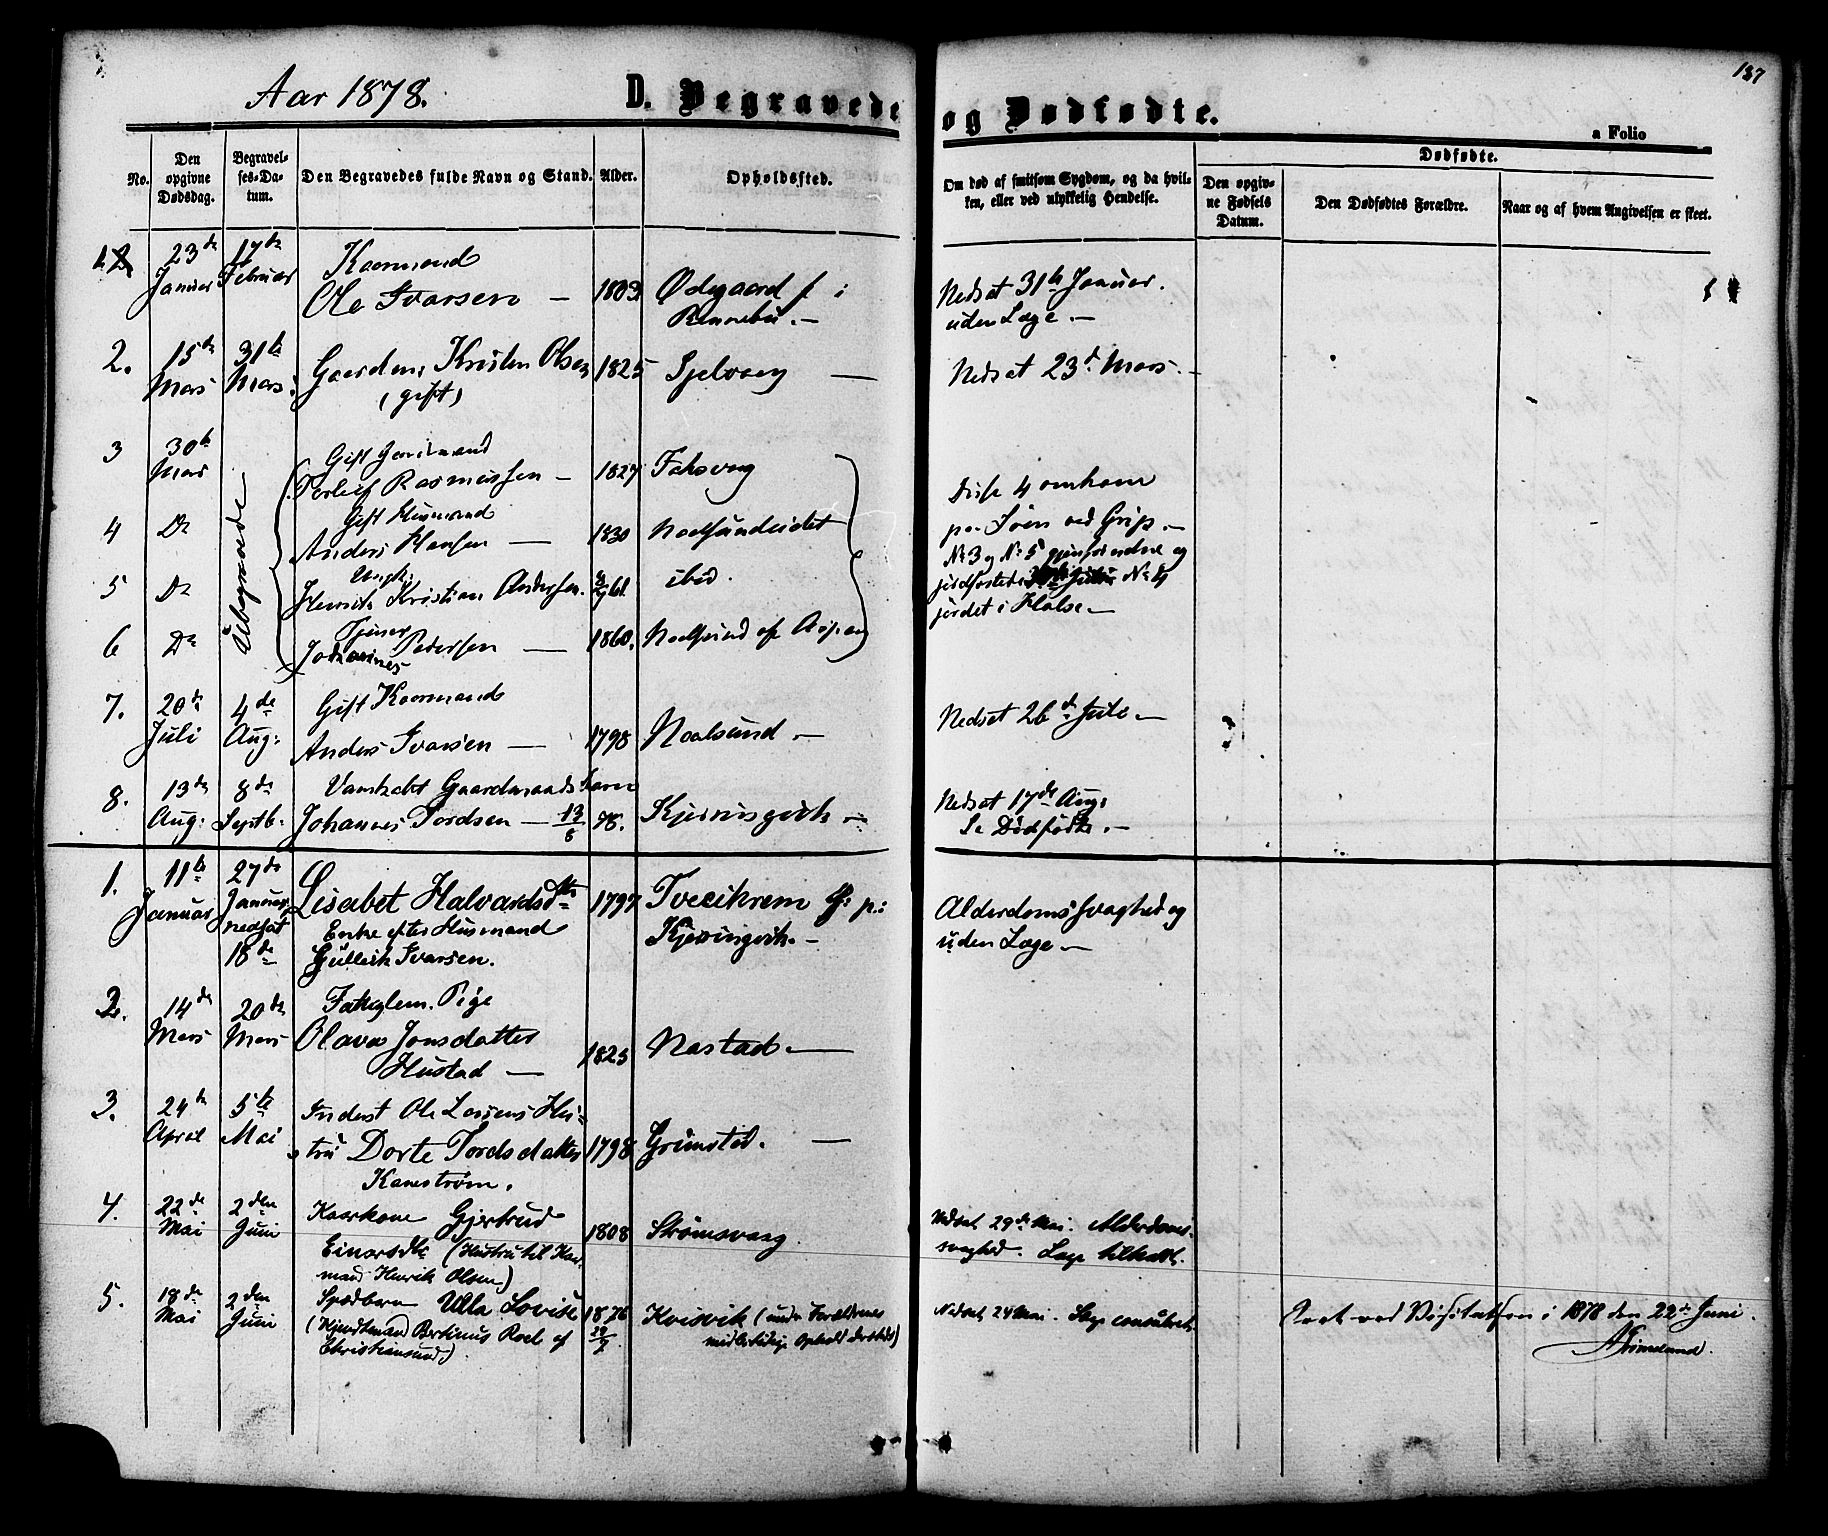 187
Aar 1878.
D. Begravede og Dødfødte.
a Folio
No.
Den opgivne Dødsdag.
Begravelses-Datum.
Den Begravedes fulde Navn og Stand.
Alder.
Opholdssted.
Om død af smitsom Sygdom, og da hvilken, eller ved ulykkelig Hendelse.
Dødfødte.
Den opgivne Fødsels Datum.
Den Dødfødtes Forældre.
Naar og af hvem Angivelsen er skeet.
1. 23de Januar 17de Februar
Kaarmand
Ole Ivarsen — 1803 Ødegaard f i
Rennebu. —
Nedsat 31te Januar.
uden Læge —
2. 15de Mars 31te Mars.
Gaardm. Kristen Olsen 1825
(gift)
Nedsat 23d Mars.
3 30te Mars
Gift
Rasmussen — 1827
4 Do
Gift Husmand
Anders Hansen — 1830 Naalsundeidet
5 Do
Ungk.
Henrik Kristian Andersen. 61 ibid.
6 Do
Tjener
Johannes Pedersen — 1860. Naalsund
Disse 4 omkom
paa Søen ved Grip. —
No 3 og No 5 gjenfundne og
jordfæstede No 4
jordet i Halse —
7. 20de Juli 4de Aug:
Gift Kaarmand
Anders Ivarsen — 1798 Naalsund. —
Nedsat 26d Juli —
8. 13de Aug: 8de Septb.
Vanskabt Gaardmands barn
Johannes Tordsen — 13/8 78. Kjørringvik —
Nedsat 17de Aug:
Se Dødfødte. —
1. 11te Januar 27de Januar nedsat 18de
Lisabet Halvardsdtr 1797
Enke efter Husmand
Gullik Ivarsen.
Tveeikrem p:
Kjørringvik. —
Alderdomssvaghed og
uden Læge —
2. 14de Mars 20de Mars
Pige
Olava Jonsdatter
Hustad — 1825 Nastad. —
3. 24de April 5te Mai
Inderst Ole Larsens Hustru
Dorte Tordsdatter 1798 Grimstad. —
Kanestrøm.
4. 22de Mai 2den Juni
Kaarkone Gjertrud
Einarsdtr (Hustru til Kaarmand Henrik Olsen)
1808 Strømsvaag.
Nedsat 29de Mai. Alderdomssvaghed. Læge tilkaldt.
5. 18de Mai 2den Juni
Spædbarn Ulla Lovise 1876
Bertinus Roel af
Christiansund)
Kvisvik (under Forældrenes
midlertidige Ophold dersteds)
Nedsat 24 Mai. Læge consuleret.
Seet ved Visitatsen i 1878 den 22de Juni.